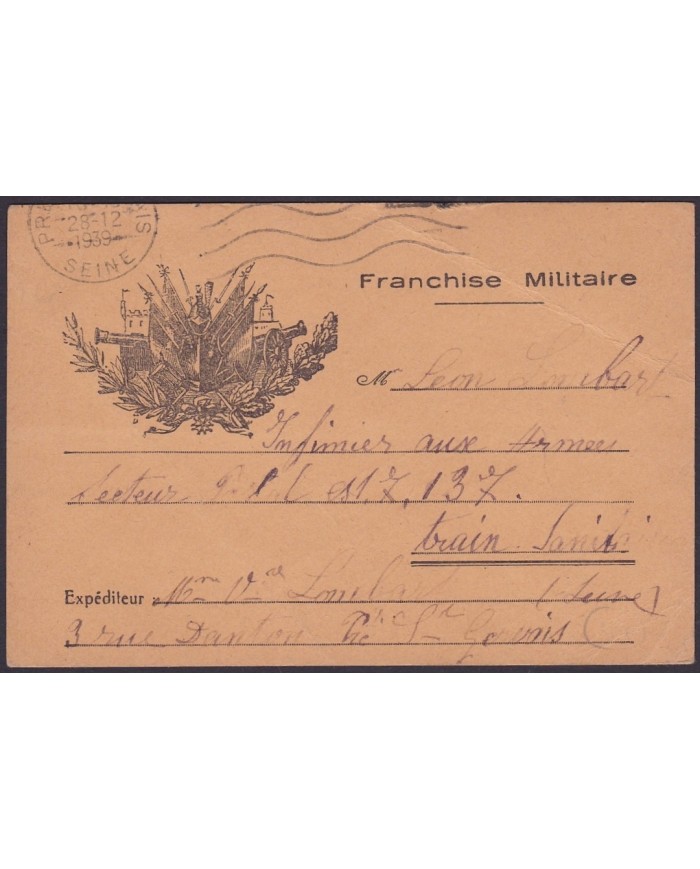 28-12
1939
SEINE
Franchise Militaire
M Léon Lombart
Infimier aux Armees
Secteur 137.
train Sanit
Expéditeur Mme Vve Lomba (Seine)
3 rue Danton Pré St Gervais